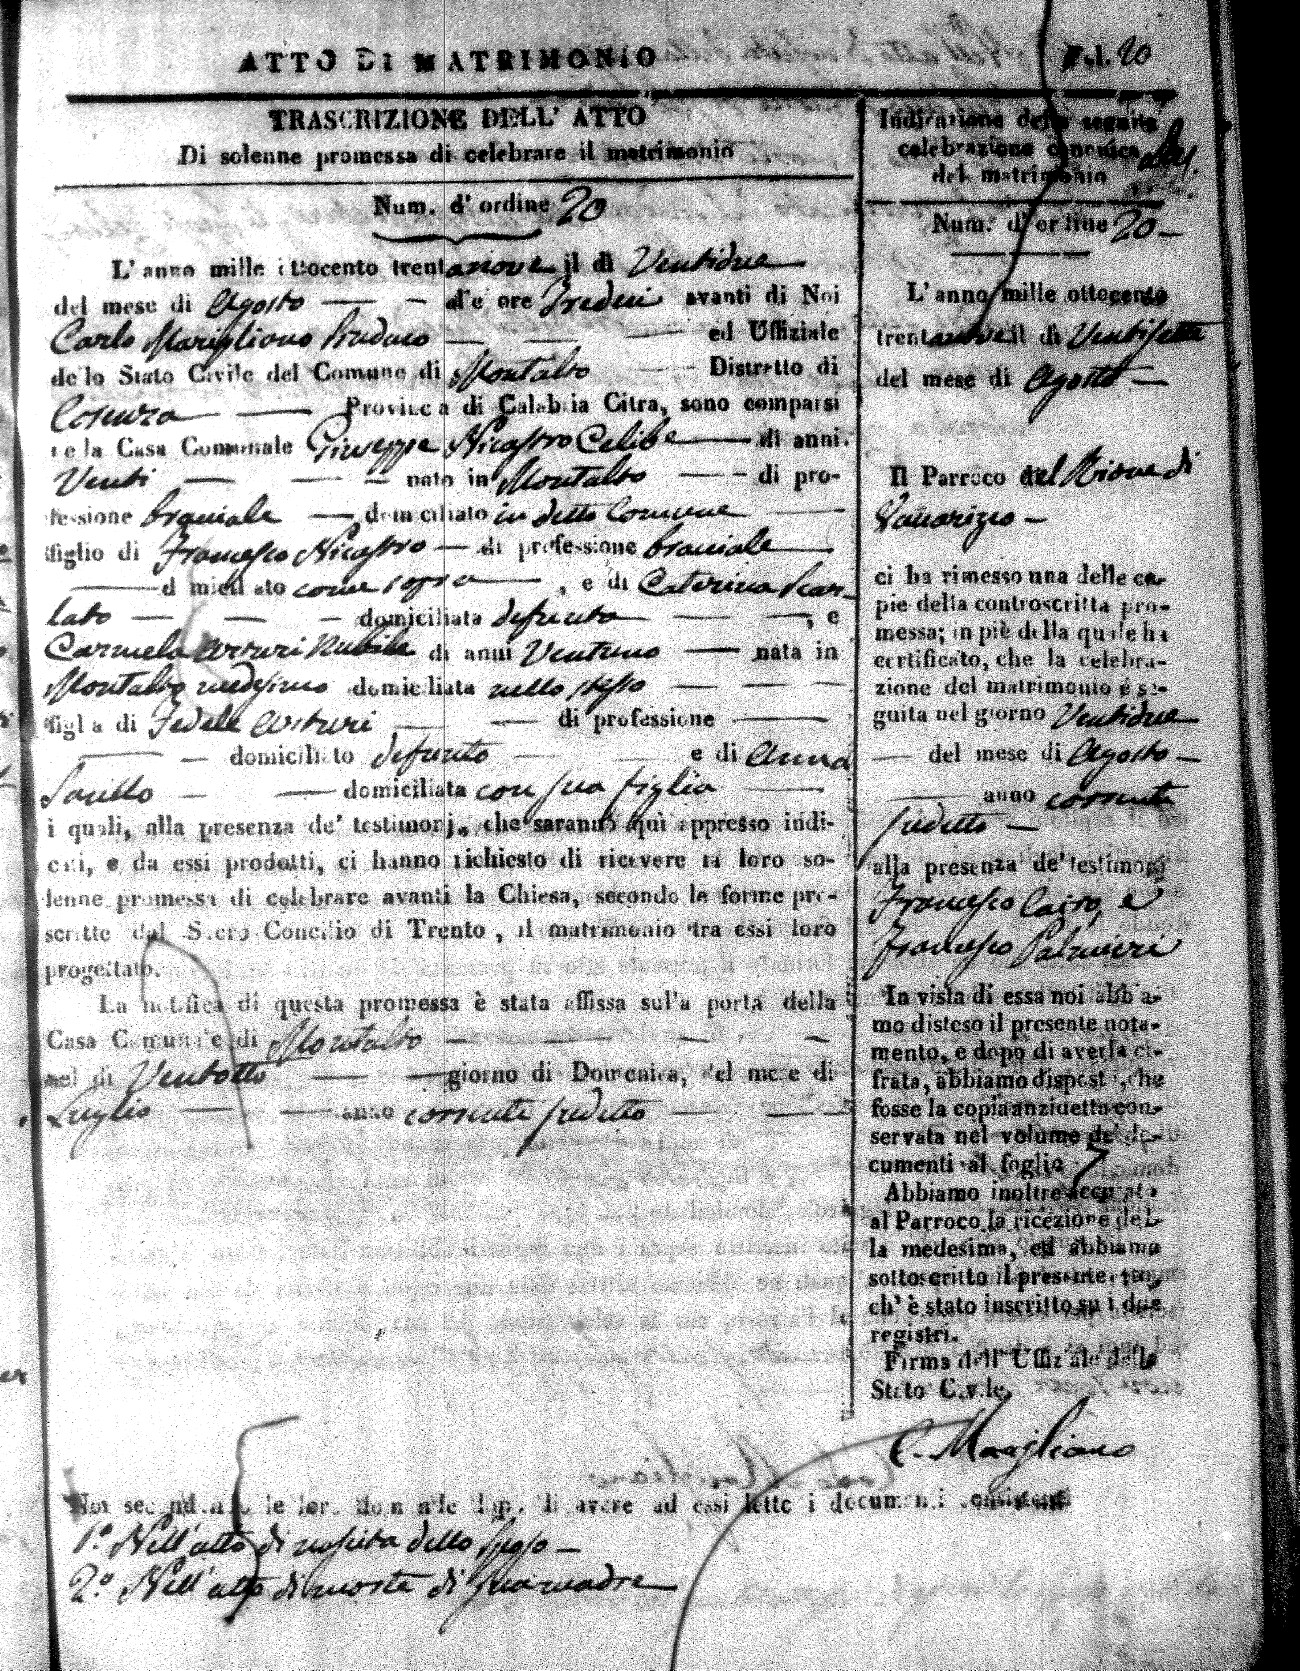 ATTO DI MATRIMONIO
Fol. 20
TRASCRIZIONE DELL' ATTO
Di solenne promessa di celebrare il matrimonio
Num. d' ordine 20
L' anno mille ottocento trentanove il dì Ventidue
del mese di Agosto alle ore Tredici avanti di Noi
Carlo Marigliano Sindaco ed Uffiziale
dello Stato Civile del Comune di Montalto Distretto di
Cosenza Provincia di Calabria Citra, sono comparsi
nella Casa Comunale Giuseppe Nicastro Celibe di anni
Venti nato in Montalto di pro-
fessione braciale domiciliato in detto Comune
figlio di Francesco Nicastro di professione braciale
domiciliato come sopra, e di Caterina Scar-
lato domiciliata defunta, e
Carmela Arturi Nubile di anni Ventuno nata in
Montalto medesimo domiciliata nello stesso
figlia di Fedele Arturi di professione
domiciliato defunto e di Anna
Sarillo domiciliata con sua figlia
i quali, alla presenza de' testimonj, che saranno quì appresso indi-
cati, e da essi prodotti, ci hanno richiesto di ricevere la loro so-
lenne promessa di celebrare avanti la Chiesa, secondo le forme pre-
scritte dal Sacro Concilio di Trento, il matrimonio tra essi loro
progettato.
La notifica di questa promessa è stata affissa sulla porta della
Casa Comunale di Montalto
nel dì Ventotto giorno di Domenica, del mese di
Luglio anno corrente suddetto
Noi secondando le loro domande dopo di avere ad essi letto i documenti consistenti
1.º Nell'atto di nascita dello sposo
2.º Nell'atto di morte di sua madre
Indicazione della seguita
celebrazione canonica
del matrimonio
Num. d' ordine 20
L' anno mille ottocento
trentanove il dì Ventisette
del mese di Agosto
Il Parroco del Rione di
Vaccarizzo
ci ha rimesso una delle co-
pie della controscritta pro-
messa; in piè della quale ha
certificato, che la celebra-
zione del matrimonio è se-
guita nel giorno Ventidue
del mese di Agosto
anno corrente
suddetto
alla presenza de' testimonj
Francesco Cairo, e
Francesco Palmieri
In vista di essa noi abbia-
mo disteso il presente nota-
mento, e dopo di averla ci-
frata, abbiamo disposto, che
fosse la copia anzidetta con-
servata nel volume de' do-
cumenti al foglio 7
Abbiamo inoltre accusato
al Parroco la ricezione del-
la medesima, ed abbiamo
sottoscritto il presente,
ch' è stato inscritto su i due
registri.
Firma dell' Uffiziale dello
Stato Civile,
C. Marigliano